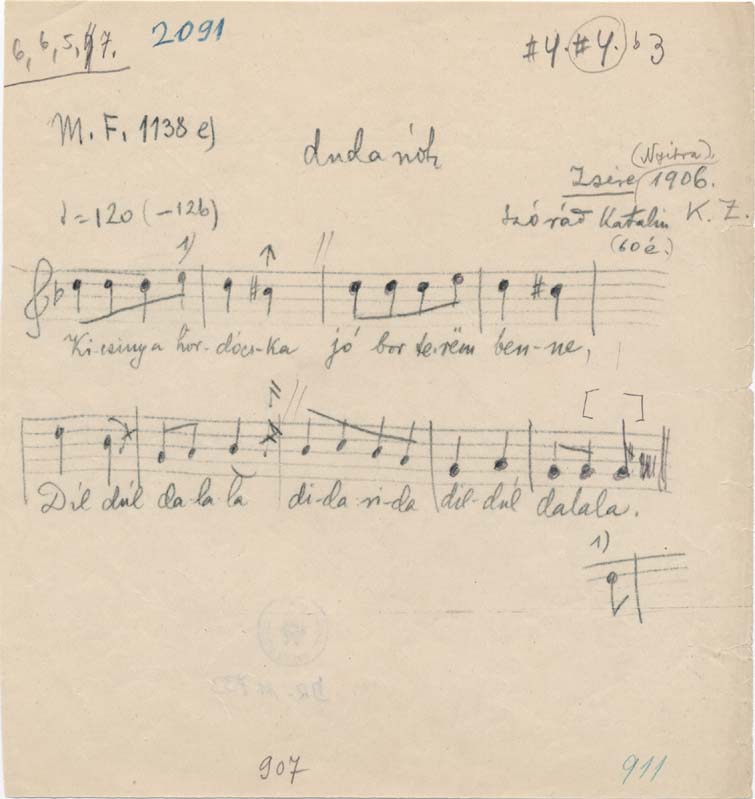 6, 6, 5, 7.
2091
#4. #4. b3
M. F. 1138 e)
duda nóta
(Nyitra).
Zsére 1906.
♩=120 (-126)
Szórád Katalin K. Z.
(60 é.)
1)
Ki-csiny a hor-dócs-ka jó bor te-rëm ben-ne,
[ ]
Díl dúl da-la-la di-da-ri-da dil-dúl dalala.
1)
907
911